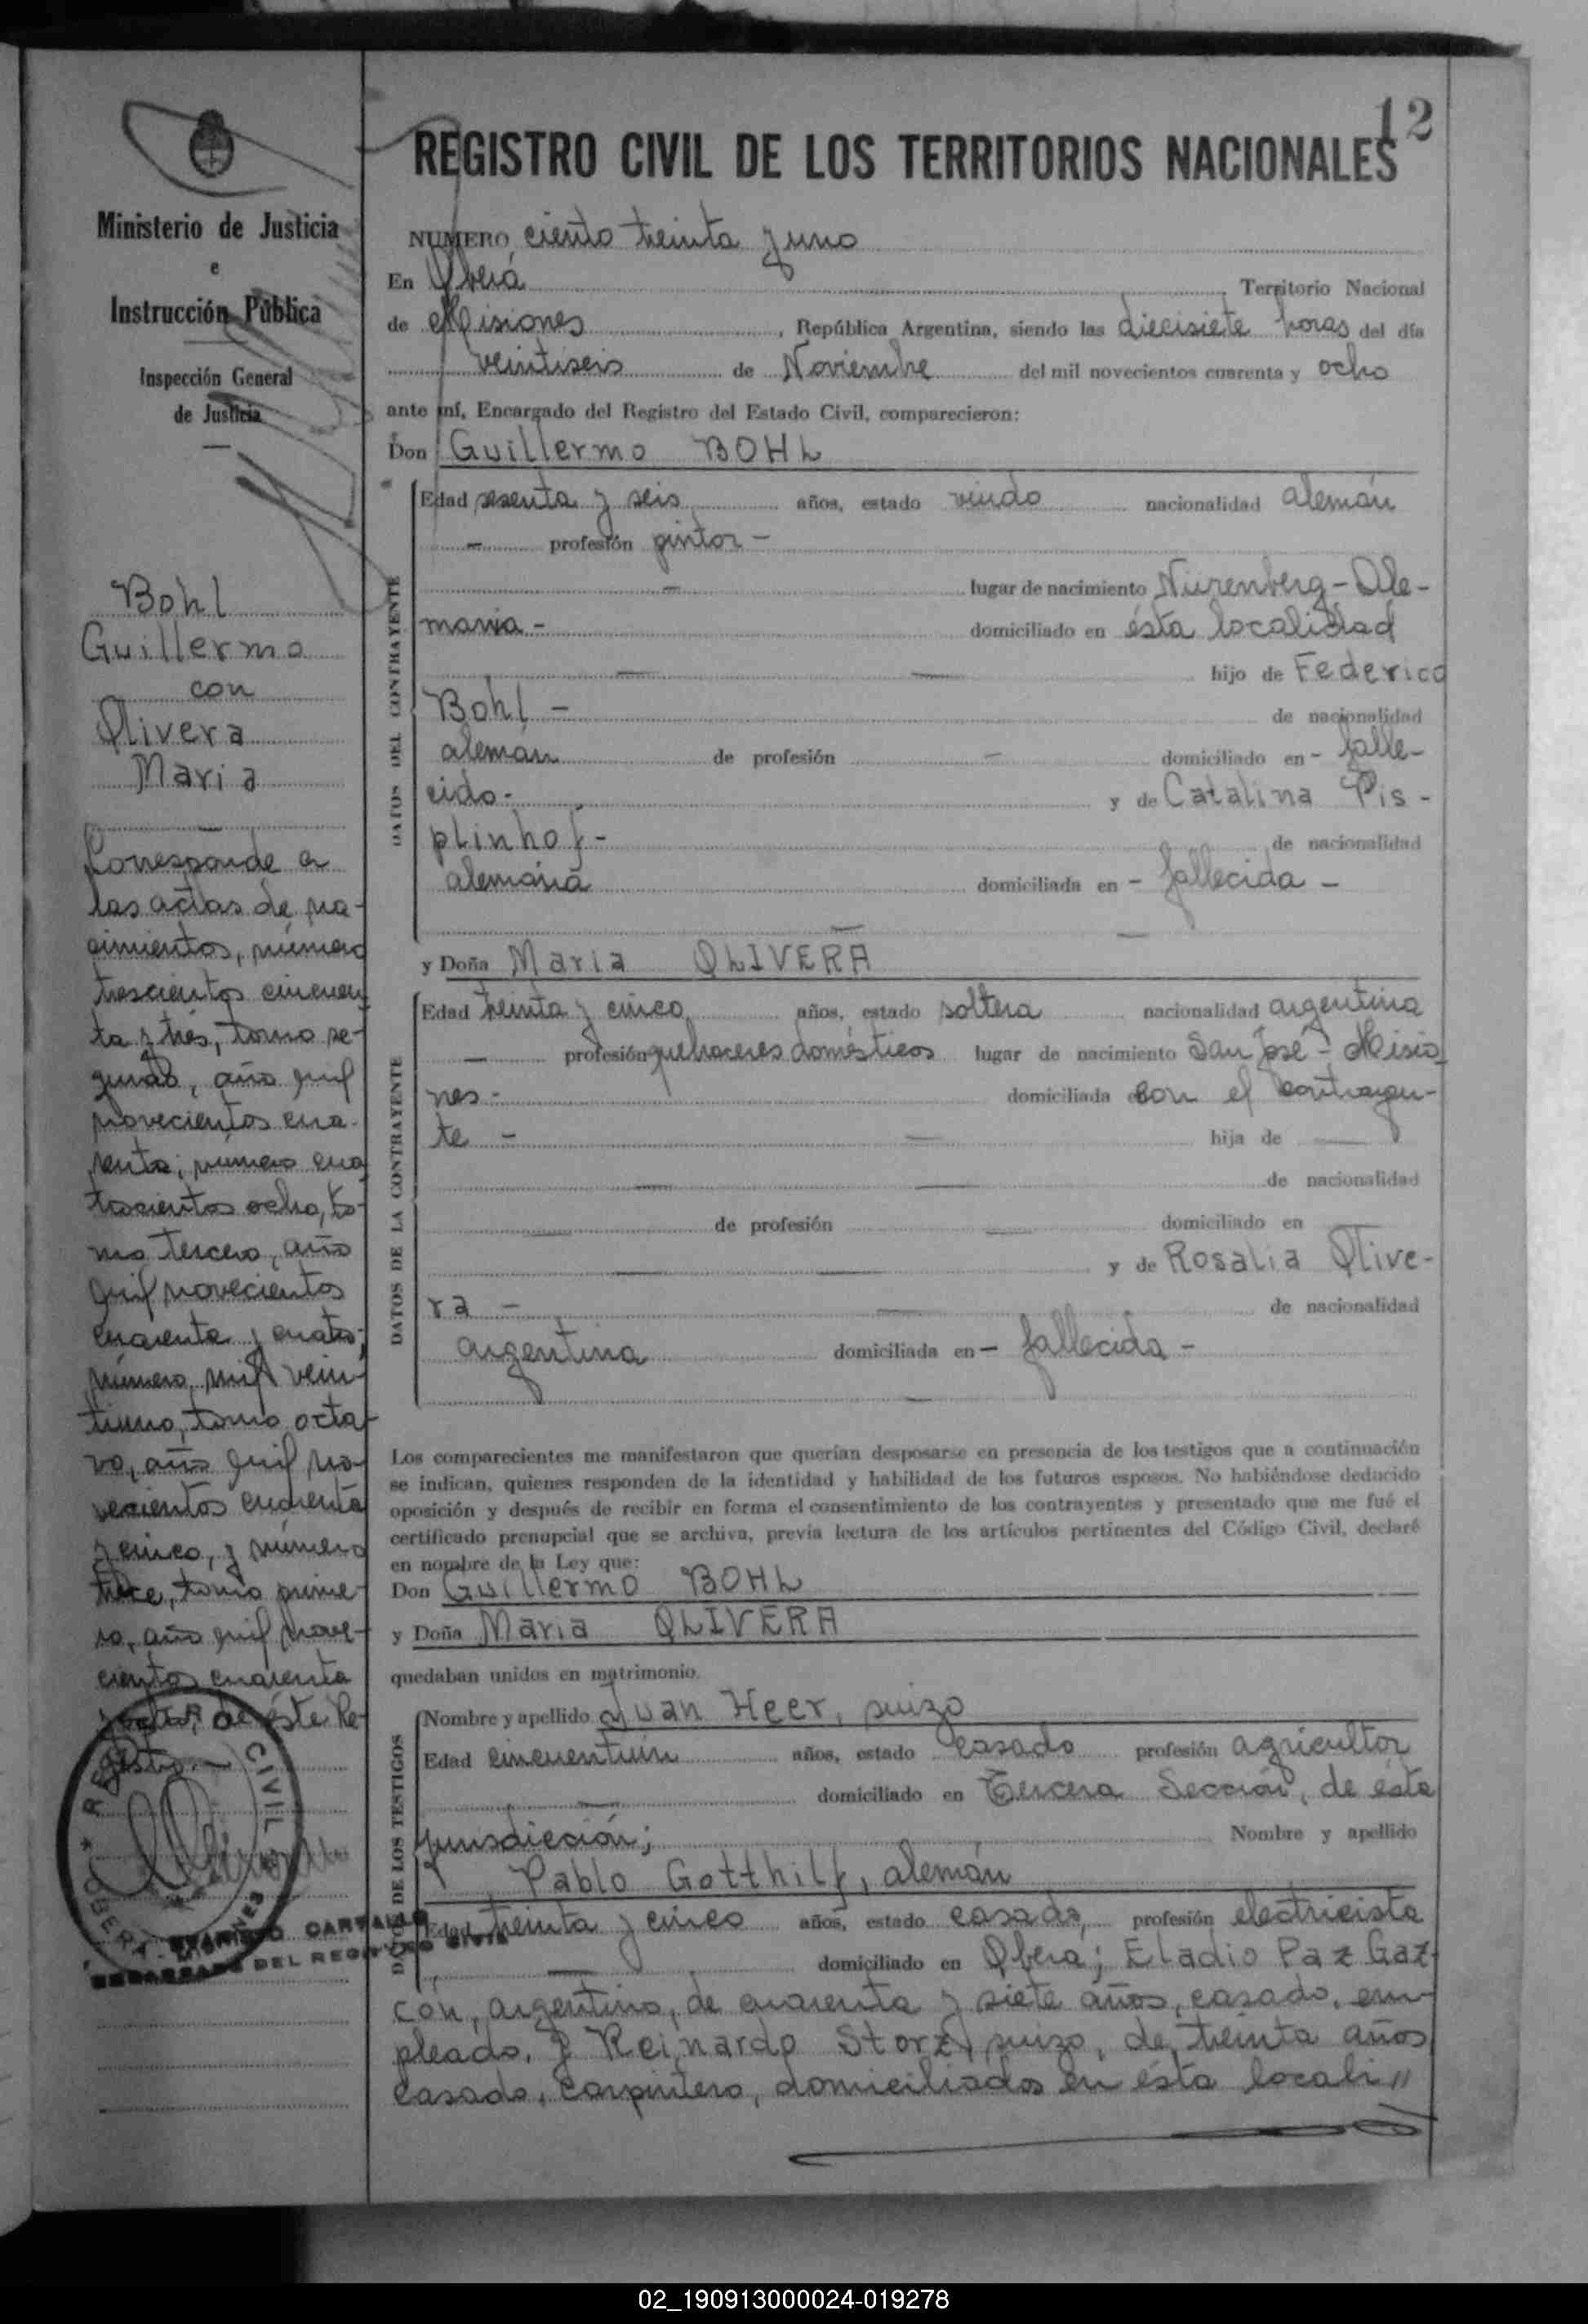 12
REGISTRO CIVIL DE LOS TERRITORIOS NACIONALES
Ministerio de Justicia
e
Instrucción Pública
Inspección General
de Justicia
NUMERO ciento treinta y uno
En Oberá Territorio Nacional
de Misiones, República Argentina, siendo las diecisiete horas del día
veintiseis de Noviembre del mil novecientos cuarenta y ocho
ante mí, Encargado del Registro del Estado Civil, comparecieron:
Don Guillermo BOHL
DATOS DEL CONTRAYENTE
Edad sesenta y seis años, estado viudo nacionalidad alemán
— profesión pintor -
— lugar de nacimiento Nürenberg - Ale-
mania - domiciliado en ésta localidad
— — hijo de Federico
Bohl - de nacionalidad
alemán de profesión — domiciliado en - falle-
cido - y de Catalina Pis-
plinhof - de nacionalidad
alemana domiciliada en - fallecida -
— —
y Doña Maria OLIVERA
DATOS DE LA CONTRAYENTE
Edad treinta y cinco años, estado soltera nacionalidad argentina
— profesión quehaceres domésticos lugar de nacimiento San José - Misio-
nes - domiciliada con el contrayen-
te - — hija de —
— — de nacionalidad
— de profesión — domiciliado en —
— — y de Rosalia Olive-
ra - — de nacionalidad
argentina domiciliada en - fallecida -
—
Los comparecientes me manifestaron que querían desposarse en presencia de los testigos que a continuación
se indican, quienes responden de la identidad y habilidad de los futuros esposos. No habiéndose deducido
oposición y después de recibir en forma el consentimiento de los contrayentes y presentado que me fué el
certificado prenupcial que se archiva, previa lectura de los artículos pertinentes del Código Civil, declaré
en nombre de la Ley que:
Don Guillermo BOHL
y Doña Maria OLIVERA
quedaban unidos en matrimonio.
DATOS DE LOS TESTIGOS
Nombre y apellido Juan Heer, suizo
Edad cincuentiún años, estado casado profesión agricultor
— domiciliado en Tercera Sección, de ésta
jurisdicción; Nombre y apellido
Pablo Gotthilf, alemán
Edad treinta y cinco años, estado casado, profesión electricista
— domiciliado en Oberá; Eladio Paz Gaz-
cón, argentino, de cuarenta y siete años, casado, em-
pleado, y Reinardo Storz, suizo, de treinta años
casado, carpintero, domiciliados en ésta locali"
Bohl
Guillermo
con
Olivera
Maria
—
Corresponde a
las actas de na-
cimientos, número
trescientos cincuen
ta y trés, tomo se-
gundo, año mil
novecientos cua-
renta; número cua
trocientos ocho, to-
mo tercero, año
mil novecientos
cuarenta y cuatro;
número mil vein-
tiuno, tomo octa-
vo, año mil no-
vecientos cuarenta
y cinco, y número
trece, tomo prime-
ro, año mil nove-
cientos cuarenta
y ocho, de éste Re-
gistro. —
REGISTRO CIVIL
OBERA - MISIONES
CARVALLO
ENCARGADO DEL REGISTRO CIVIL
02_190913000024-019278